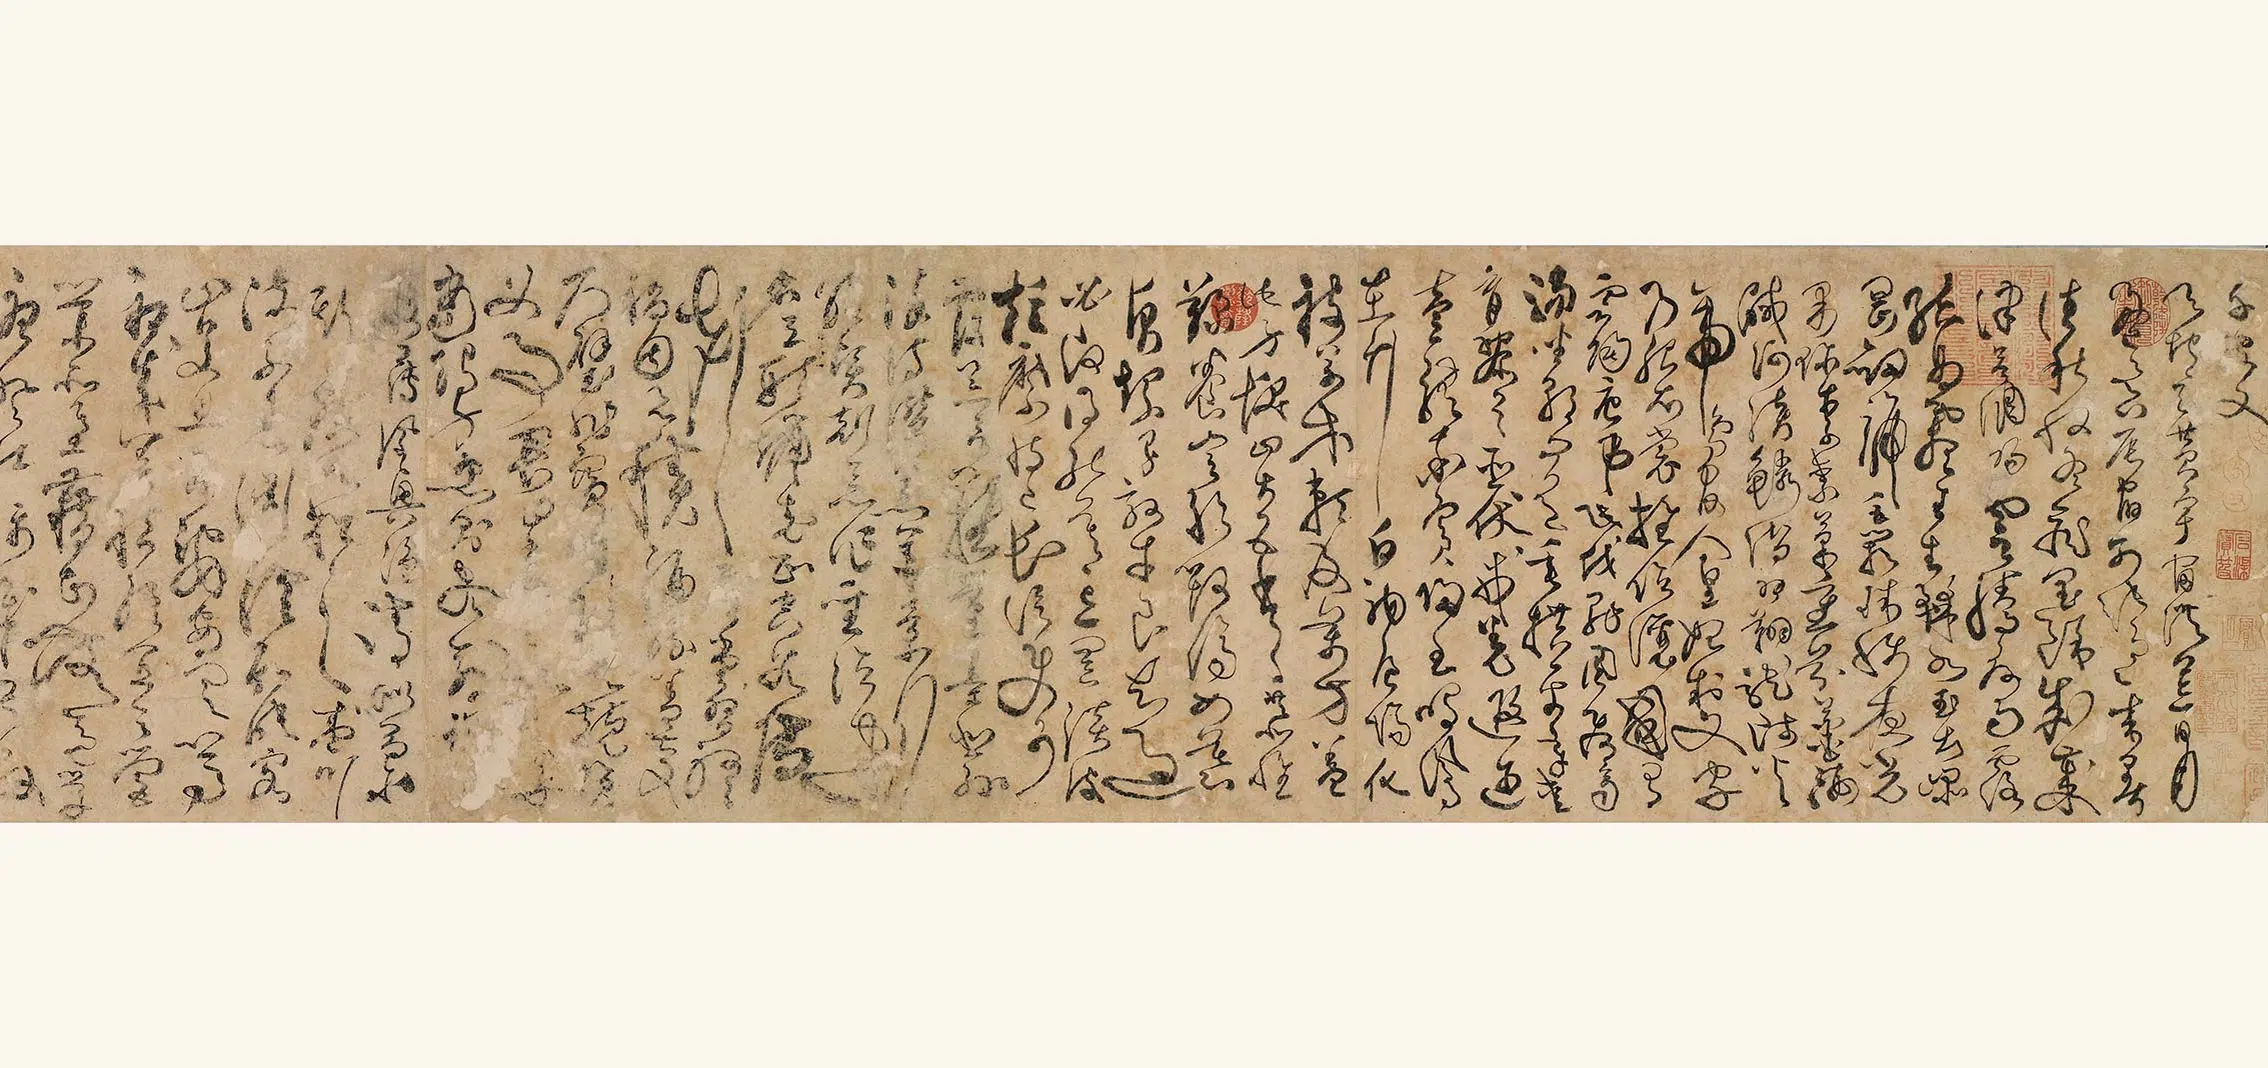 千字文
天地玄黃宇宙洪荒日月
盈昃辰宿列張寒來暑
往秋收冬藏閏餘成歲
律呂調陽雲騰致雨露
結為霜金生麗水玉出崐
崗劍號巨闕珠稱夜光
果珍李柰菜重芥薑海
鹹河淡鱗潛羽翔龍師火
帝鳥官人皇始制文字
乃服衣裳推位讓國有
虞陶唐弔民伐罪周發商
湯坐朝問道垂拱平章愛
育黎首臣伏戎羌遐邇
壹體率賓歸王鳴鳳
在竹白駒食場化
被草木賴及萬方蓋
此身髮四大五常恭惟
鞠養豈敢毀傷女慕
貞絜男效才良知過
必改得能莫忘罔談彼
短靡恃己長信使可
覆器欲難量墨悲絲
染詩讚羔羊景行
維賢剋念作聖德建
名立形端表正空谷
傳聲虛堂習聽
禍因惡積福緣善慶
尺璧非寶寸陰是競資
父事君曰嚴與敬孝
當竭力忠則盡命臨
深履薄夙興溫凊似蘭斯
馨如松之盛川
流不息淵澄取映容
止若思言辭安定篤
初誠美慎終宜令榮
業所基籍甚無竟學
優登仕攝職從政